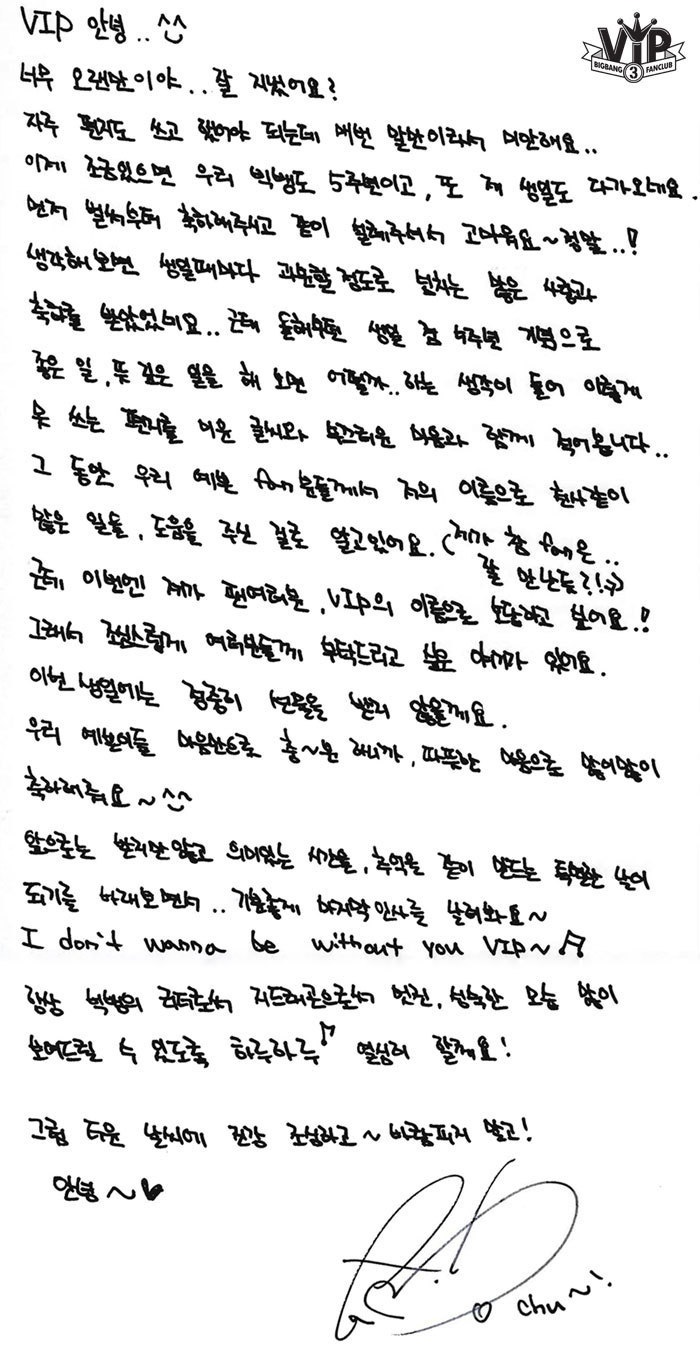 VIP 안녕.. ^^
VIP
BIGBANG 3 FANCLUB
너무 오랜만이야.. 잘 지냈어요?
자주 편지도 쓰고 했어야 되는데 매번 말만이라서 미안해요..
이제 조금있으면 우리 빅뱅도 5주년이고, 또 제 생일도 다가오네요.
먼저 벌써부터 축하해주시고 같이 설레주셔서 고마워요~ 정말..!
생각해보면 생일때마다 과분할 정도로 넘치는 많은 사랑과
축하를 받았었네요.. 근데 올해부턴 생일 겸 5주년 기념으로
좋은 일, 뜻 깊은 일을 해 보면 어떨까.. 하는 생각이 들어 이렇게
못 쓰는 편지를 미운 글씨와 부끄러운 마음과 함께 적어봅니다..
그 동안 우리 예쁜 fan분들께서 저의 이름으로 천사같이
많은 일들, 도움을 주신 걸로 알고있어요. (제가 참 fan은..
잘 만난듯?!)
근데 이번엔 제가 팬여러분, VIP의 이름으로 보답하고 싶어요!!
그래서 조심스럽게 여러분들께 부탁드리고 싶은 얘기가 있어요.
이번 생일에는 정중히 선물을 받지 않을게요.
우리 예쁜이들 마음만으로 충~분 하니까, 따뜻한 마음으로 많이많이
축하해줘요~ ^^
앞으로는 받지만 않고 의미있는 시간을, 추억을 같이 만드는 특별한 날이
되기를 바래보면서.. 기분좋게 마지막 인사를 날려봐요~
I don't wanna be without you VIP~ ♫
항상 빅뱅의 리더로써 지드래곤으로써 멋진, 성숙한 모습 많이
보여드릴 수 있도록 하루하루♪ 열심히 할께요!
그럼 더운 날씨에 건강 조심하고~ 바람피지 말고!
안녕~♥
chu~!